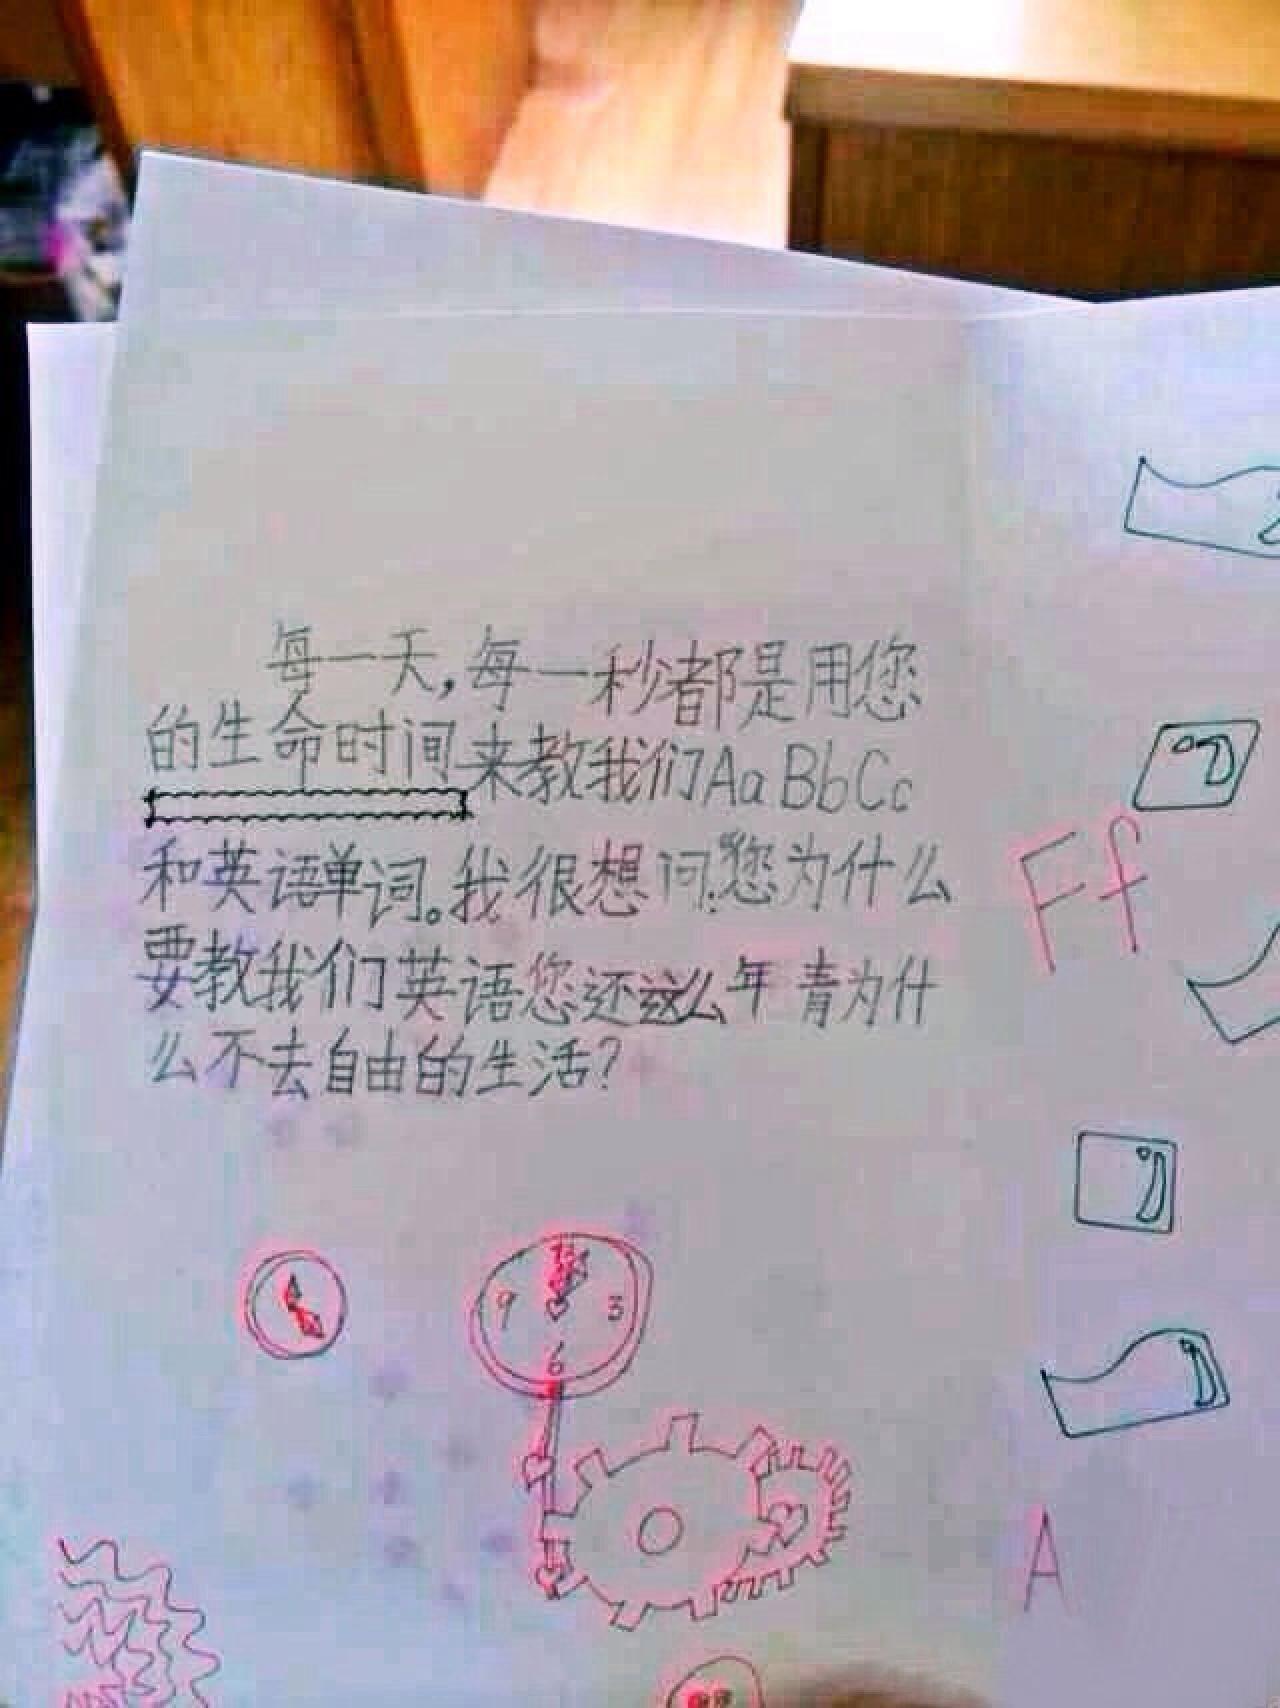 每一天,每一秒都是用您
的生命时间来教我们AaBbCc
和英语单词。我很想问:“您为什么
要教我们英语您还这么年青为什
么不去自由的生活?
Ff
12
9
3
6
A